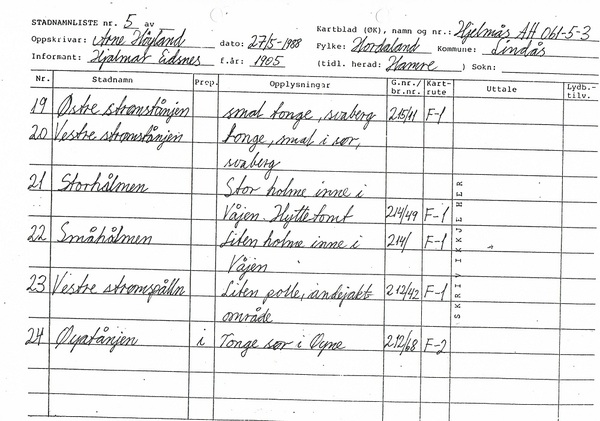 STADNAMNLISTE nr. 5 av
Oppskrivar: Arne Høyland dato: 27/5-1988
Informant: Hjalmar Eidsnes f.år: 1905
Kartblad (ØK), namn og nr.: Hjelmås AH 061-5-3
Fylke: Hordaland Kommune: Lindås
(tidl. herad: Hamre) Sokn:
Nr. Stadnamn Prep. Opplysningar G.nr./br.nr. Kart-rute Uttale Lydb.-tilv.
19 Østre straumstånjen smal tonge, svaberg 215/11 F-1
20 Vestre straumstånjen tonge, smal i sør,
svaberg
21 Storhålmen Stor holme inne i
Våjen Hyttetomt 214/49 F-1
22 Småhålmen Liten holme inne i 214/ F-1
Våjen
23 Vestre straumspålln Liten polle, andejakt- 212/42 F-1
område
24 Øyatånjen i Tonge sør i Øyne 212/68 F-2
SKRIV IKKJE HER